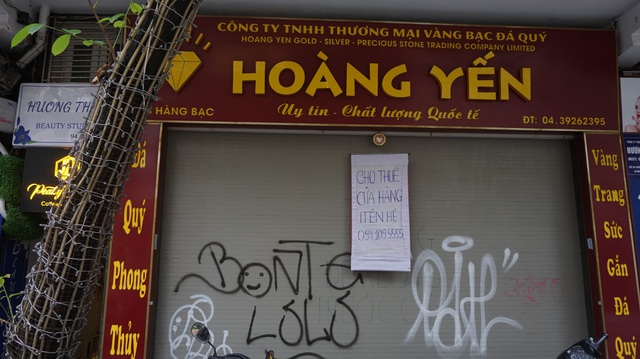 CÔNG TY TNHH THƯƠNG MẠI VÀNG BẠC ĐÁ QUÝ
HOANG YEN GOLD - SILVER - PRECIOUS STONE TRADING COMPANY LIMITED
HOÀNG YẾN
HÀNG BẠC
Uy tín - Chất lượng Quốc tế
ĐT: 04.39262395
HƯƠNG
BEAUTY
Coffee
Đá
Quý
Phong
Thủy
CHO THUÊ
CỬA HÀNG
LIÊN HỆ
BONTE
LOLO
Vàng
Trang
Sức
Gắn
Đá
Quý